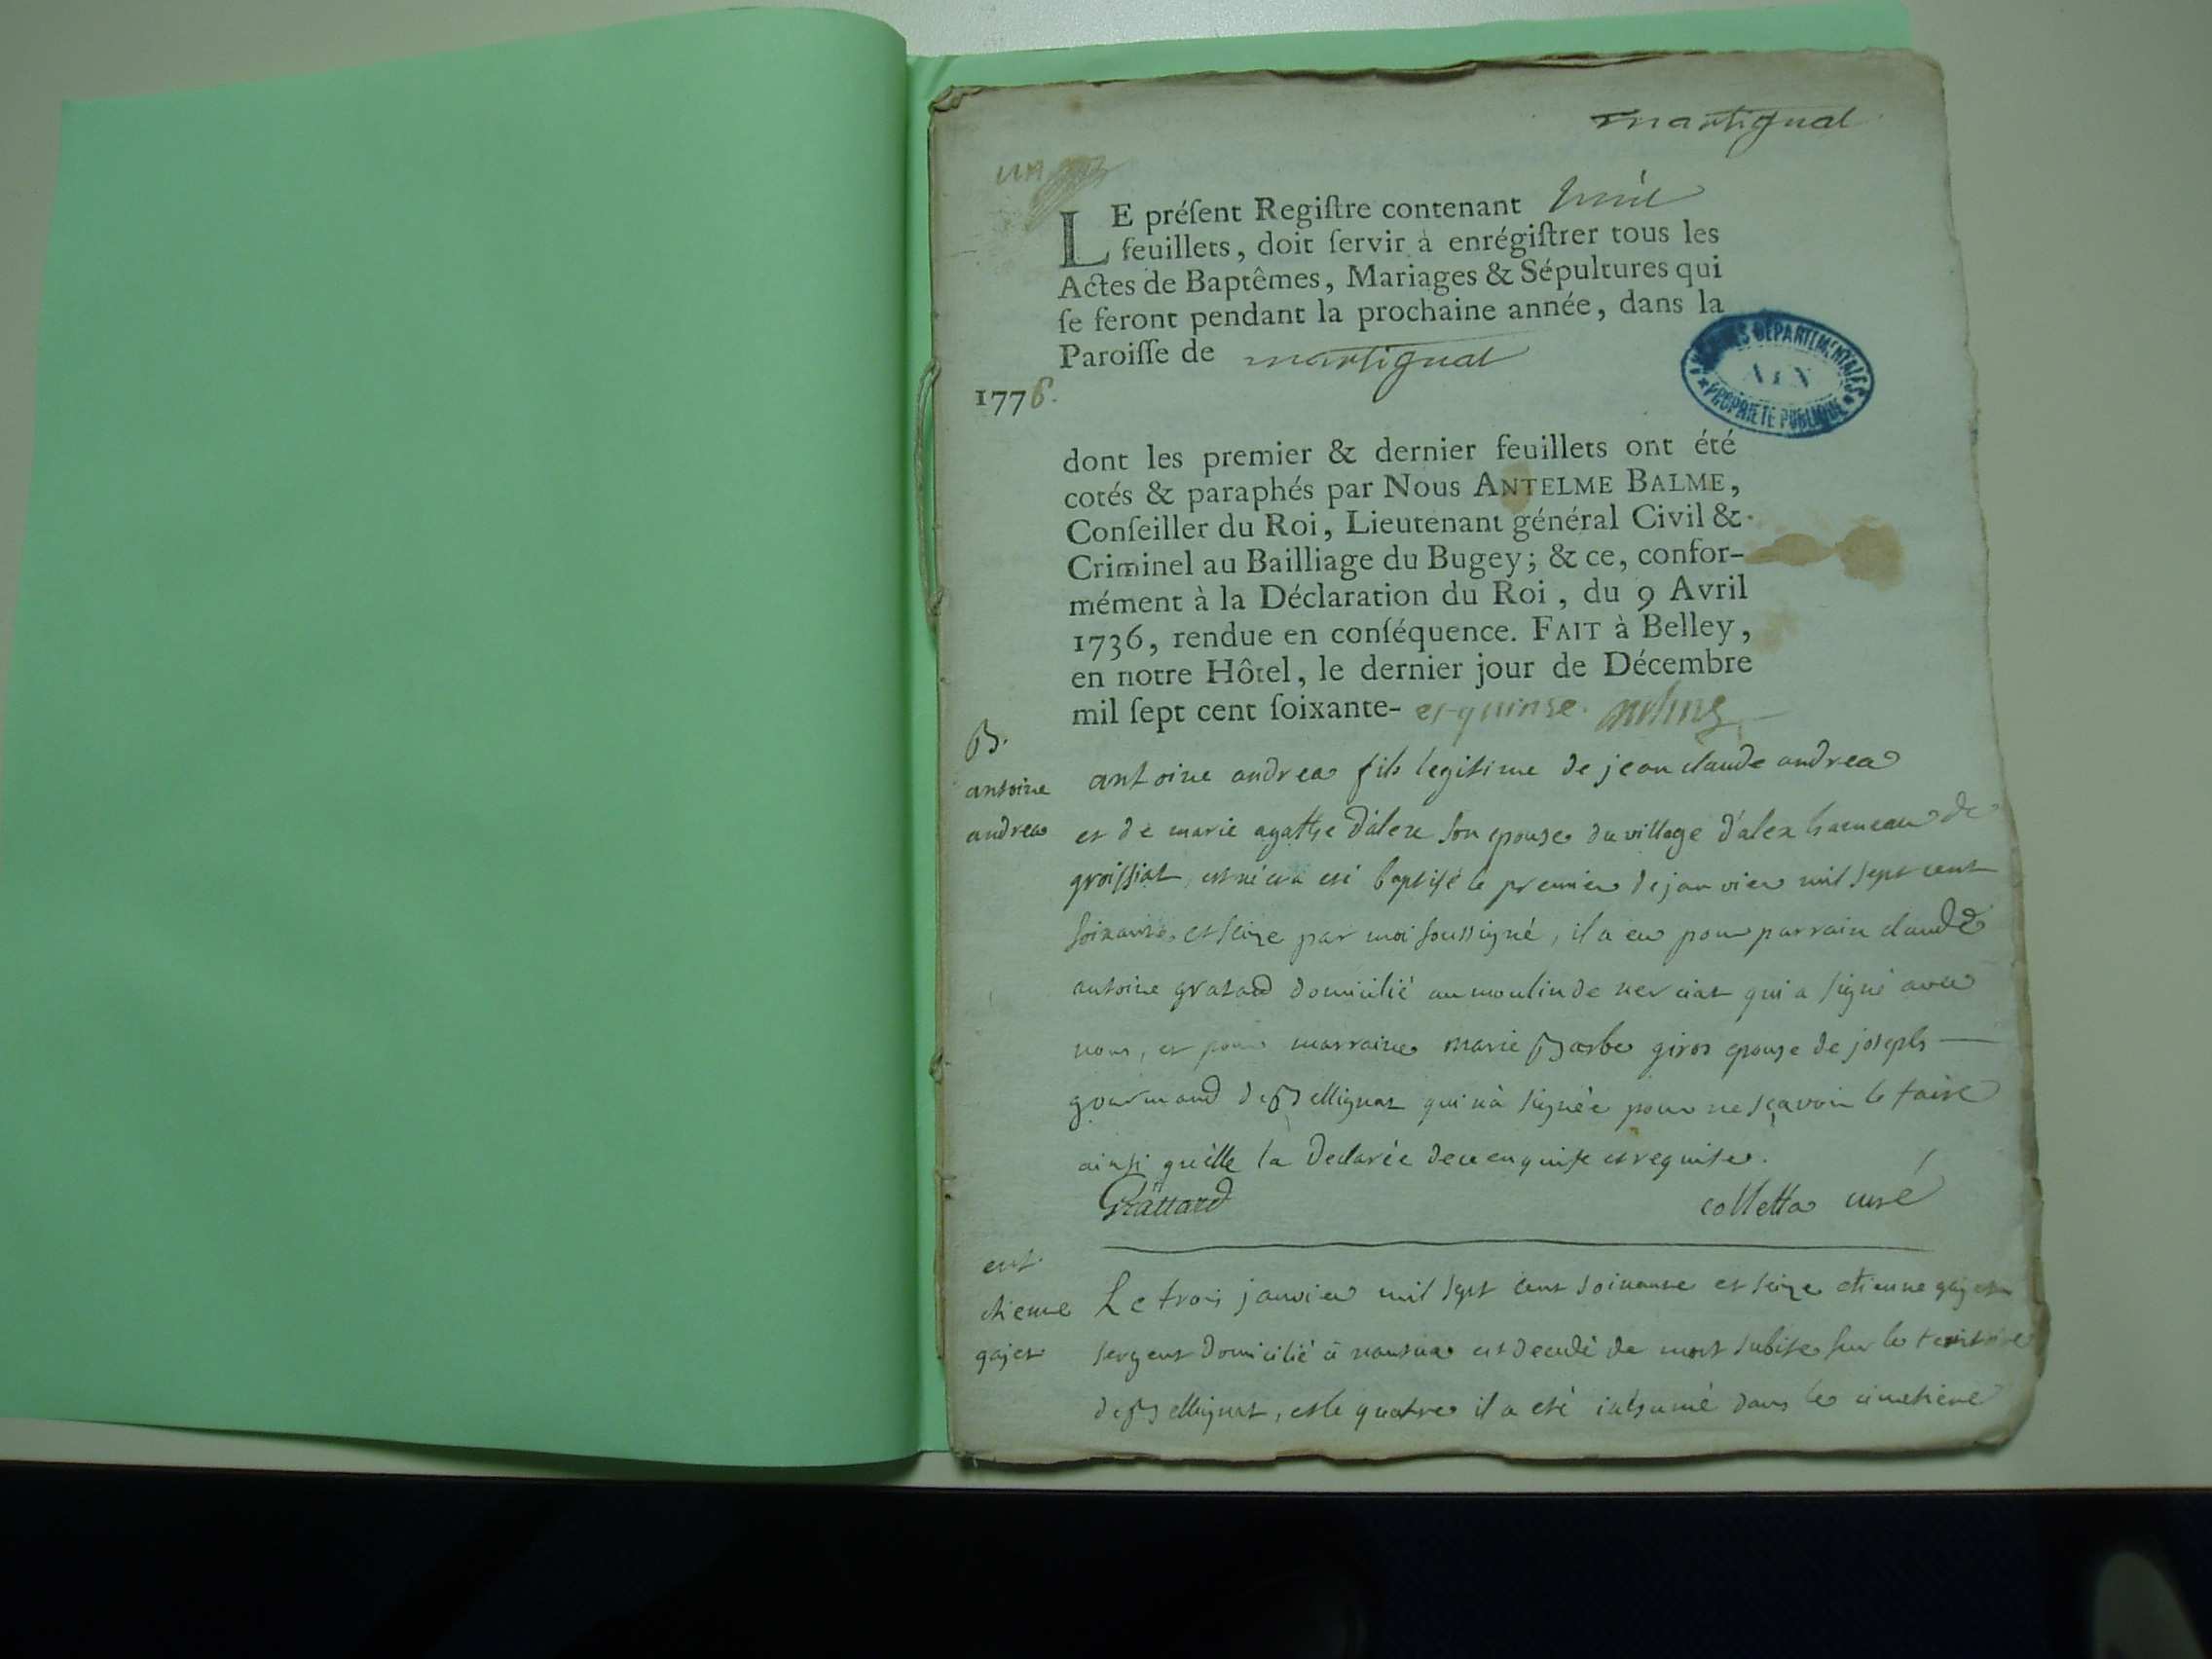 martignat
LE préſent Regiſtre contenant
feuillets, doit ſervir à enrégiſtrer tous les
Actes de Baptêmes, Mariages & Sépultures qui
ſe feront pendant la prochaine année, dans la
Paroiſſe de martignat
1776.
ARCHIVES DÉPARTEMENTALES
AIN
PROPRIÉTÉ PUBLIQUE
dont les premier & dernier feuillets ont été
cotés & paraphés par Nous ANTELME BALME,
Conſeiller du Roi, Lieutenant général Civil &
Criminel au Bailliage du Bugey; & ce, confor-
mément à la Déclaration du Roi, du 9 Avril
1736, rendue en conſéquence. FAIT à Belley,
en notre Hôtel, le dernier jour de Décembre
mil ſept cent ſoixante- et quinze.
B.
antoine
andrea
antoine andrea fils legitime de jean claude andrea
et de marie agathe d'alex son epouse du village d'alex hameau de
groissiat, est né et a eté baptisé le premier de janvier mil sept cent
soixante et seize par moi soussigné, il a eu pour parrain claude
antoine gratard domicilié au moulin de nerciat qui a signé avec
nous, et pour marraine marie Barbe giros epouse de joseph
gourmand de Bellignat qui n'a signée pour ne sçavoir le faire
ainsi qu'elle la declarée de ce enquise et requise.
Grattard colletta curé
ent.
etienne
gajet
Le trois janvier mil sept cent soixante et seize etienne gajet
sergent domicilié à nantua est decedé de mort subite sur le territoire
de Bellignat, et le quatre il a eté inhumé dans le cimetiere